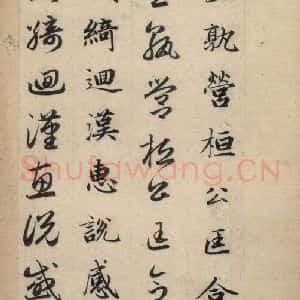 孰營桓公匡合
孰營桓公匡合
綺迴漢惠說感
綺迴漢惠說感
Shufawang.CN